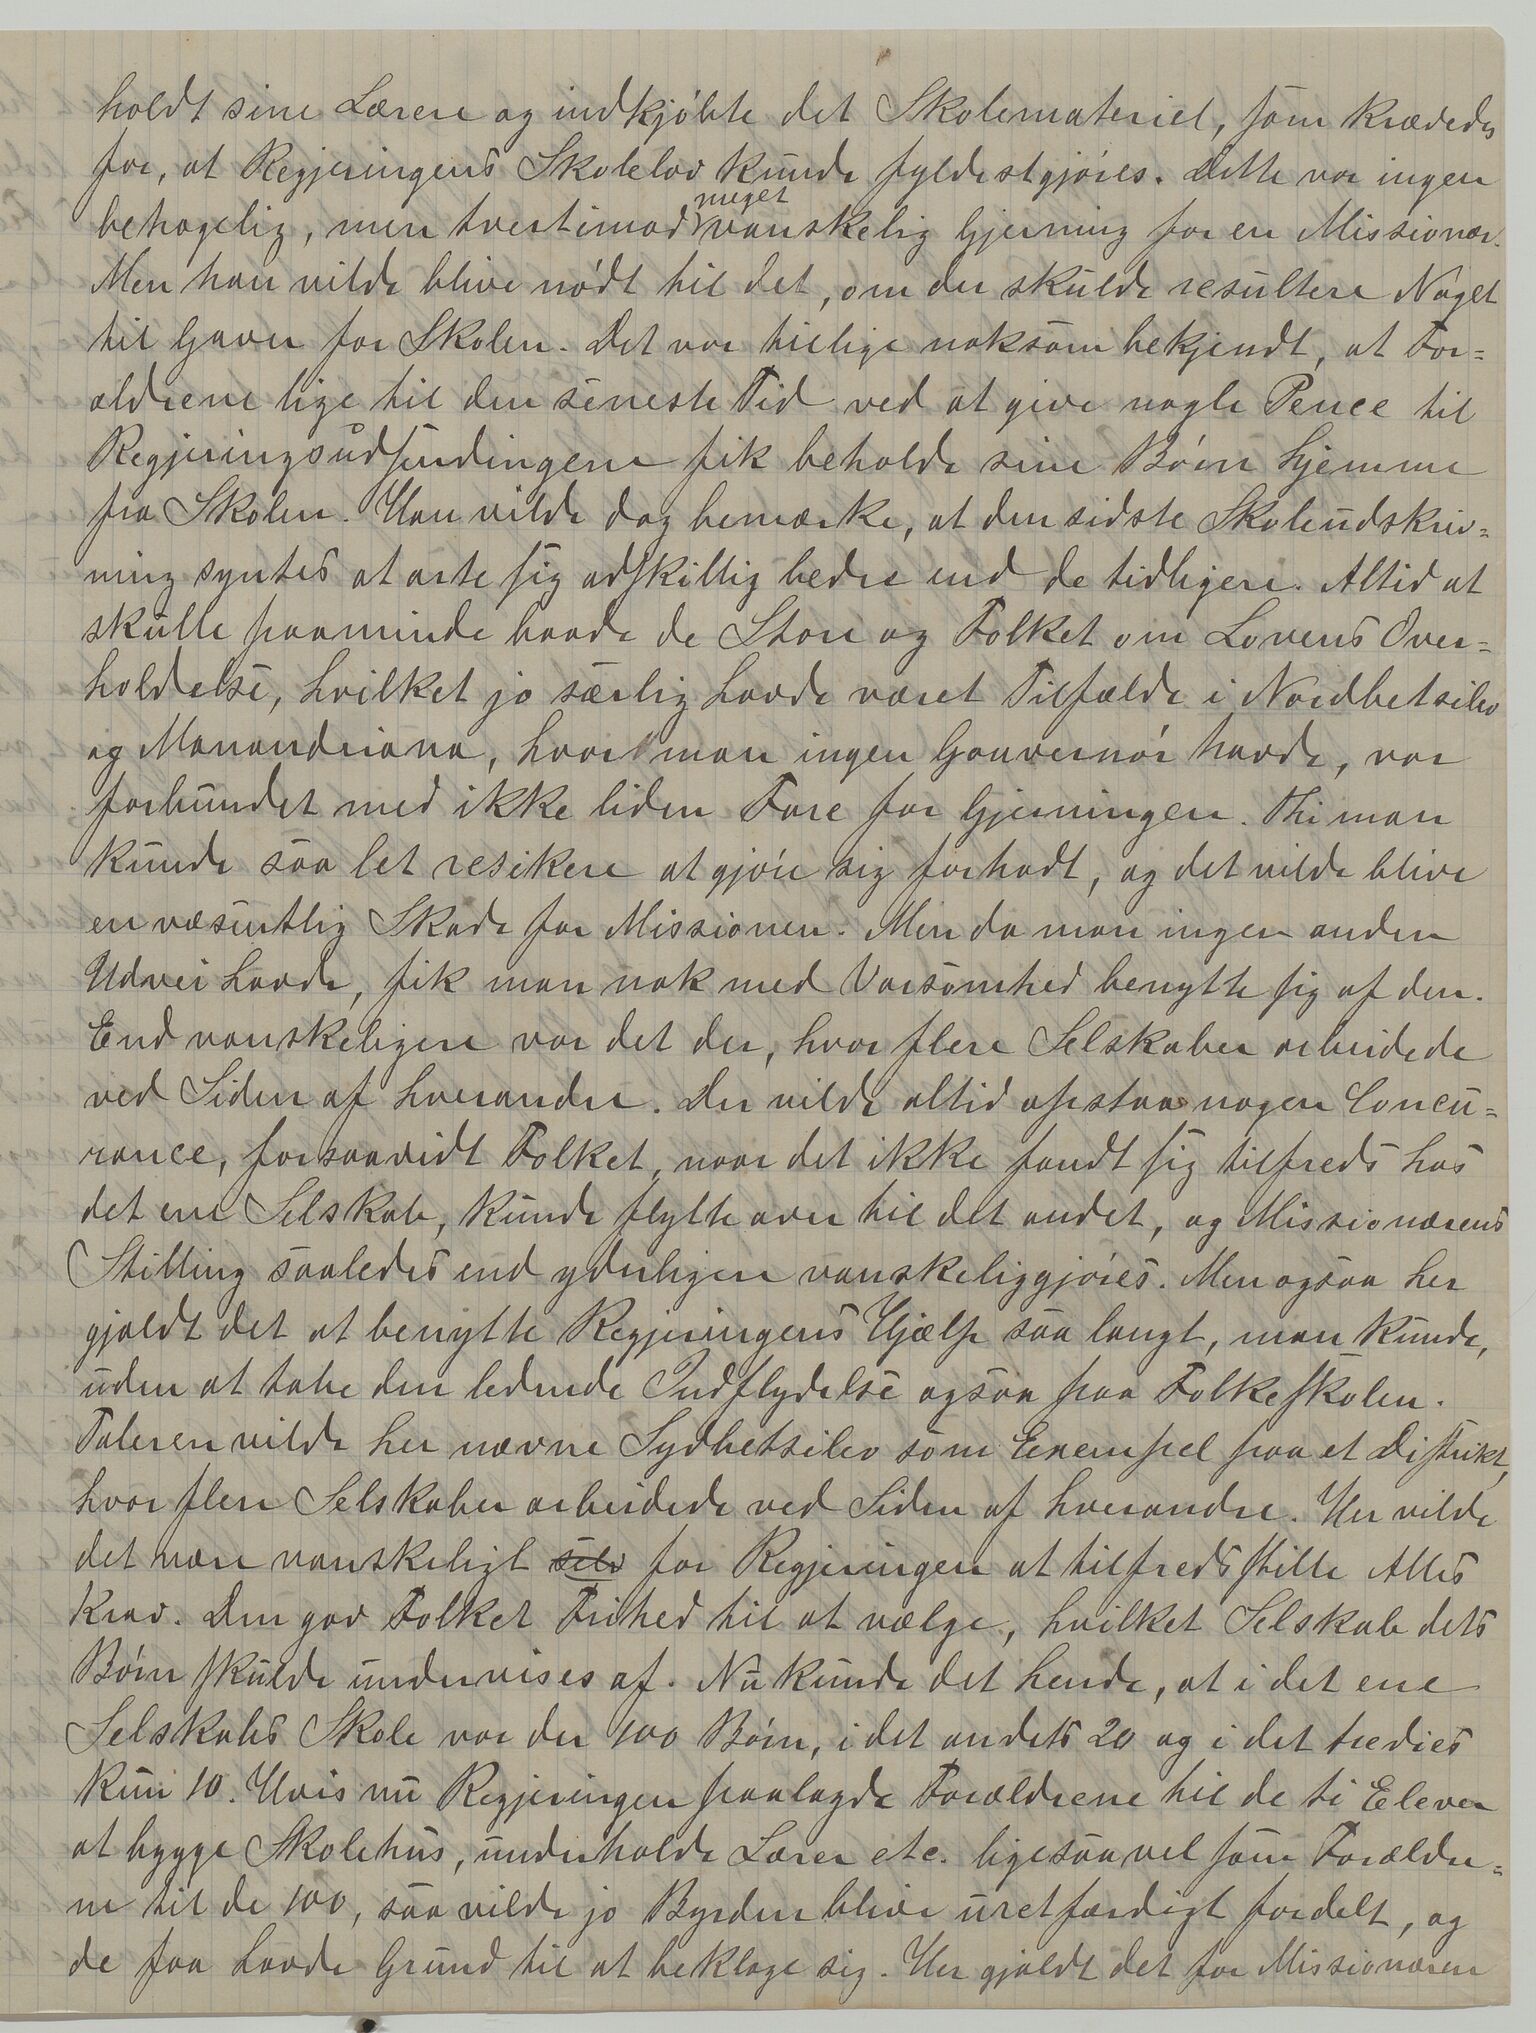 holdt sine Lærere og indkjöbte det Skolemateriel, som krævedes
for, at Regjeringens Skolelov kunde fyldestgjöres. Dette var ingen
behagelig, men tvertimod meget vanskelig Gjerning for en Missionær.
Men han vilde blive nödt til det, om der skulde resultere Noget
til Gavn for Skolen. Det var tillige noksom bekjendt, at For=
ældrene lige til den seneste Tid ved at give nogle Pence til
Regjeringsudsendingene fik beholde sine Börn hjemme
fra Skolen. Han vilde dog bemærke, at den sidste Skoleudskriv=
ning syntes at arte sig adskillig bedre end de tidligere. Altid at
skulle paaminde baade de Store og Folket om Lovens Over=
holdelse, hvilket jo særlig havde været Tilfælde i Nordbetsileo
og Manandriana, hvor man ingen Gouvernör havde, var
forbundet med ikke liden Fare for Gjerningen. Thi man
kunde saa let resikere at gjöre sig forhadt, og det vilde blive
en væsentlig Skade for Missionen. Men da man ingen anden
Udvei havde, fik man nok med Varsomhed benytte sig af den.
End vanskeligere var det der, hvor flere Selskaber arbeidede
ved Siden af hverandre. Der vilde altid opstaa nogen Concu=
rance, forsaavidt Folket, naar det ikke fandt sig tilfreds hos
det ene Selskab, kunde flytte over til det andet, og Missionærens
Stilling saaledes end yderligere vanskeliggjöres. Men ogsaa her
gjaldt det at benytte Regjeringens Hjælp saa langt, man kunde,
uden at tabe den ledende Indflydelse ogsaa paa Folkeskolen.
Taleren vilde her nævne Sydbetsileo som Exempel paa et Distrikt,
hvor flere Selskaber arbeidede ved Siden af hverandre. Her vilde
det være vanskeligt selv for Regjeringen at tilfredsstille Alles
Krav. Den gav Folket Frihed til at vælge, hvilket Selskab dets
Börn skulde undervises af. Nu kunde det hende, at i det ene
Selskabs Skole var der 100 Börn, i det andets 20 og i det tredies
kun 10. Hvis nu Regjeringen paalagde Forældrene til de ti Elever
at bygge Skolehus, underholde Lærer etc. ligesaavel som Forældre=
ne til de 100, saa vilde jo Byrden blive uretfærdigt fordelt, og
de faa havde Grund til at beklage sig. Her gjaldt det for Missionæren